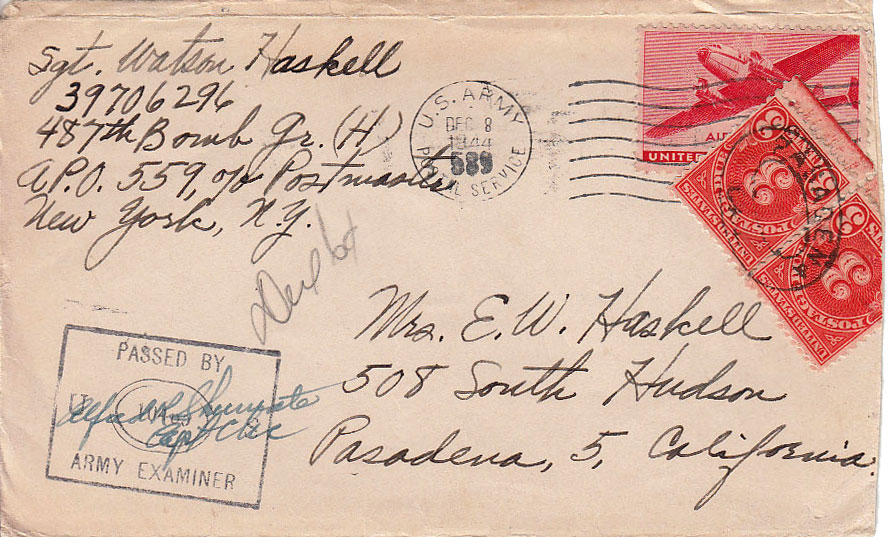 Sgt. Watson Haskell
39706296
487th Bomb Gr. (H)
A.P.O. 559, c/o Postmaster
New York, N.Y.
U.S. ARMY
DEC 8
1944
POSTAL SERVICE
AIR
UNITED
POSTAGE
UNITED STATES
3
POSTAGE
UNITED STATES
3
PASADENA
Mrs. E. W. Haskell
508 South Hudson
Pasadena, 5, California.
PASSED BY
Capt
ARMY EXAMINER